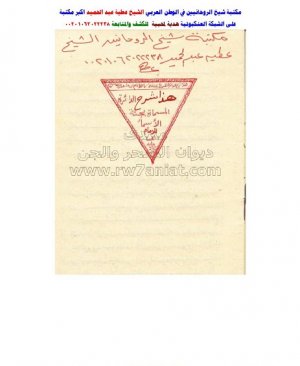 مكتبة شيخ الروحانيين في الوطن العربي الشيخ عطية عبد الحميد اكبر مكتبة
على الشبكة العنكبوتية هدية لمحبيه للكشف والمتابعة ٠٠٢٠١٠٦٢٠٢٢٢٣٨
مكتبة شيخ الروحانيين الشيخ
عطيه عبد الحميد ٠٠٢٠١٠٦٢٠٢٢٢٣٨
هذا شرح الدائرة
المسماة
الأسماء
ديوان السحر والجن
www.rw7aniat.com